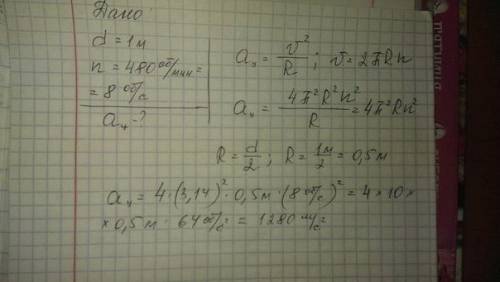 Дано
d = 1 м
n = 480 об/мин =
= 8 об/с
aч - ?
aч = v²/R ; v = 2πRn
aч = 4π²R²n²/R = 4π²Rn²
R = d/2 ; R = 1м/2 = 0,5 м
aч = 4 · (3,14)² · 0,5 м · (8 об/с)² = 4 × 10 ×
× 0,5 м · 64 об/с² = 1280 м/с²